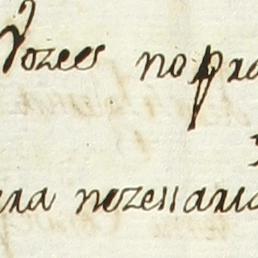 Vozees no pra
ra nozessaria